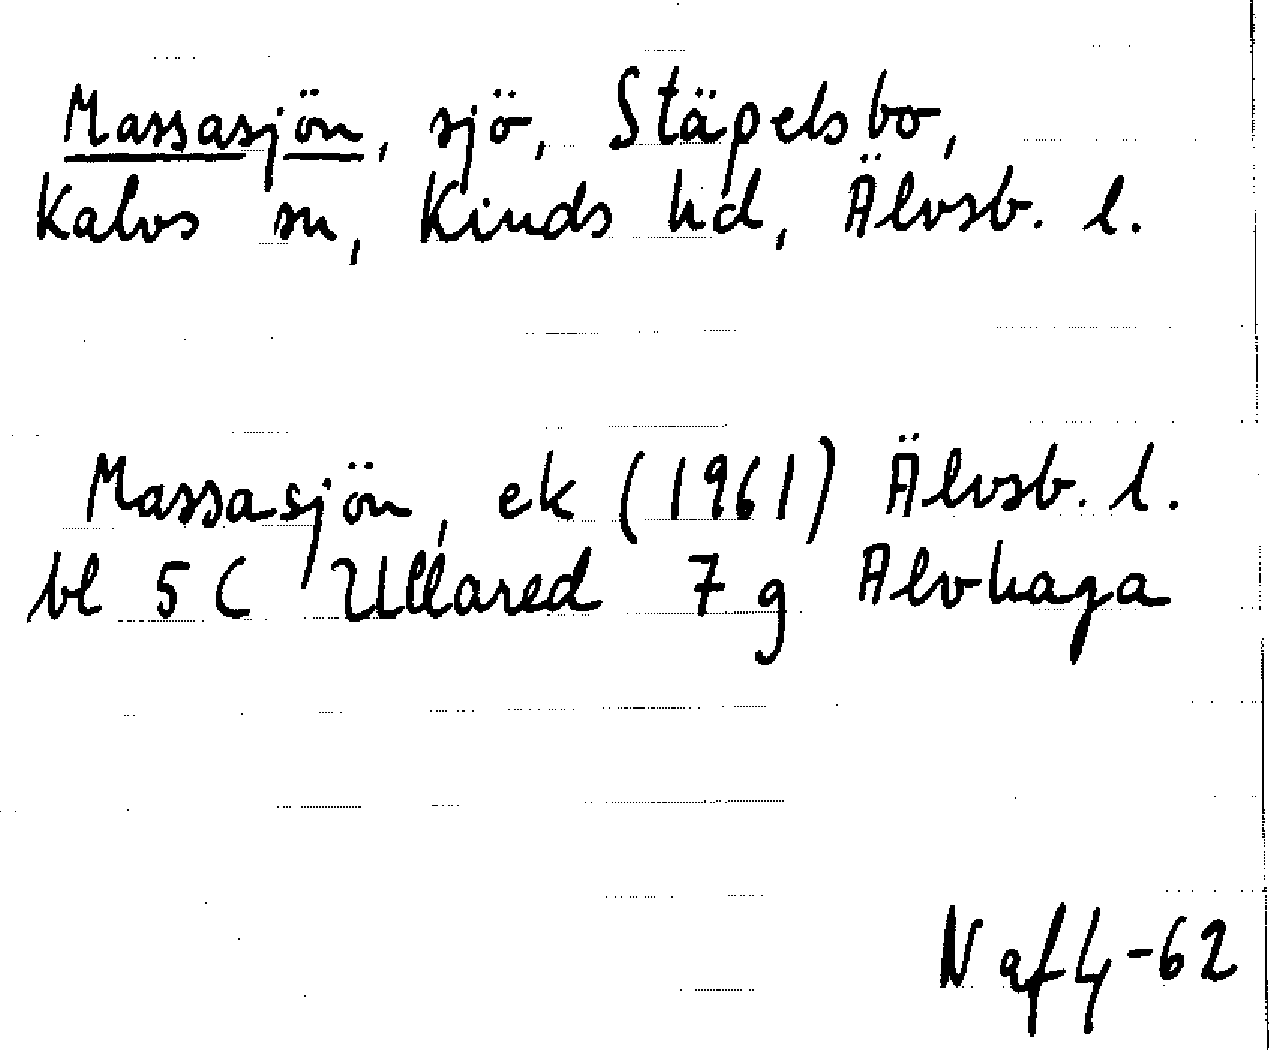 Massasjön, sjö, Stäpelsbo,
Kalvs sn, Kinds hd, Älvsb. l.
Massasjön, ek (1961) Älvsb. l.
bl 5 C Ullared 7 g Älvhaga
N af 4-62